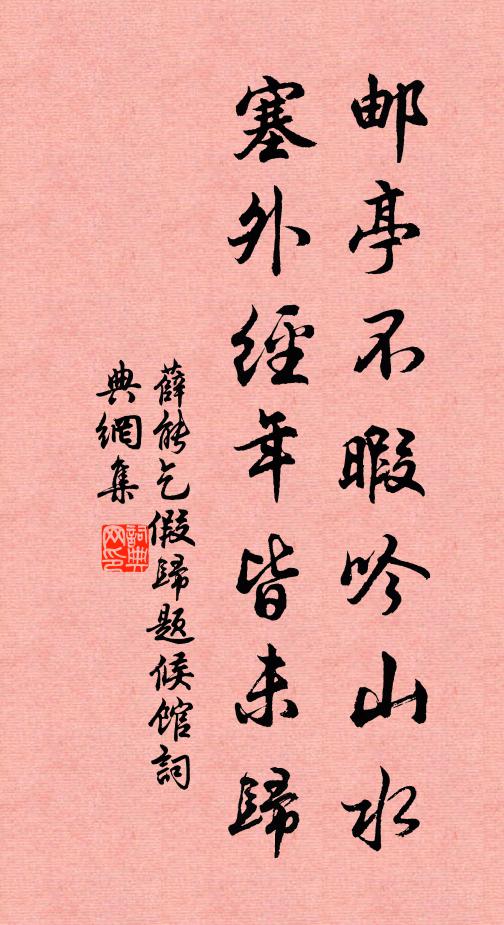 邮亭不暇吟山水
塞外經年皆未歸
薛能乞假歸題候館詞
典網集
詞典
网印